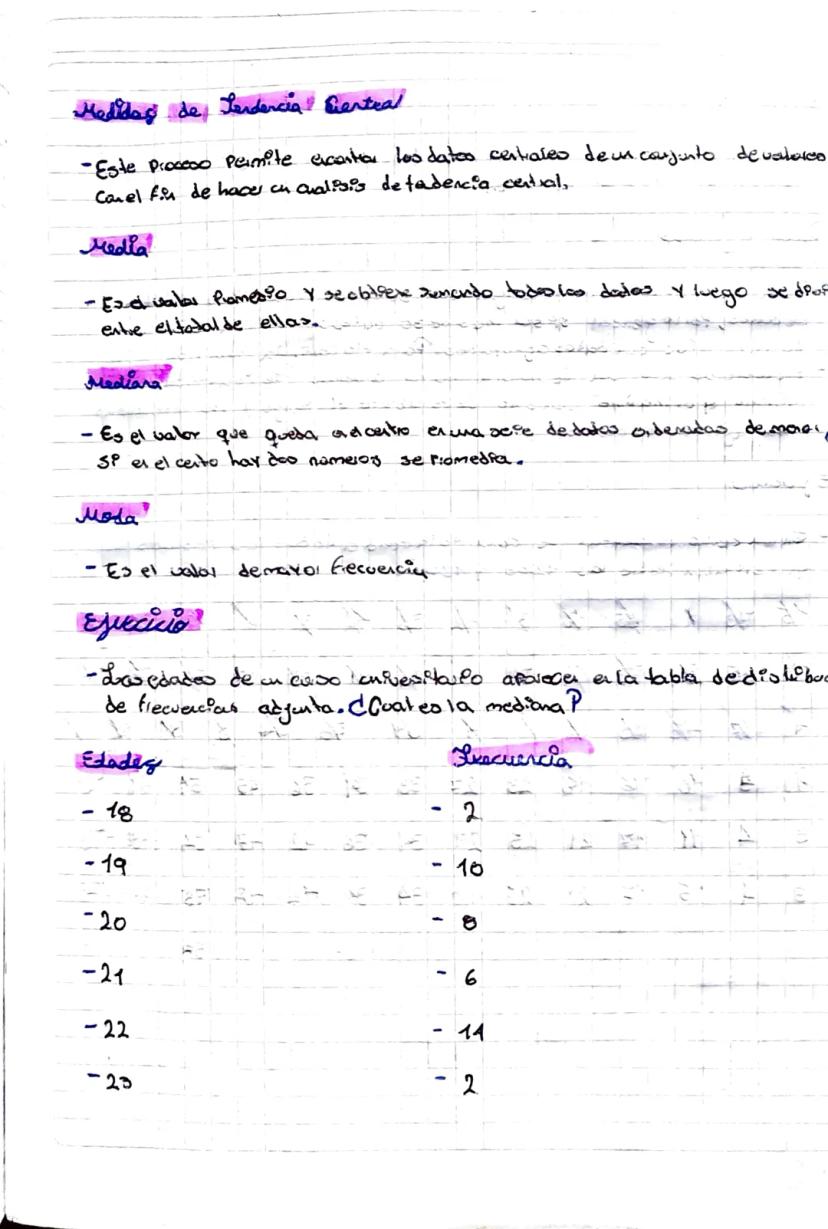 Medidas de Tendencia Central
- Este Proceso Permite encontrar los datos centrales de un conjunto de valores
Con el fin de hacer un analisis de tendencia central,
Media
- Es el valor Promedio Y se obtiene sumando todos los datos Y luego se
entre el total de ellas.
Mediana
- Es el valor que queda en el centro en una serie de datos ordenadas de
Si en el centro hay dos numeros se Promedia.
Moda
- Es el valor de mayor frecuencia
Ejercicio
- Las edades de un curso universitario aparecen en la tabla de
de frecuencias adjunta. ¿Cual es la mediana?
Edades Frecuencia
- 18 - 2
- 19 - 10
- 20 - 8
- 21 - 6
- 22 - 14
- 23 - 2